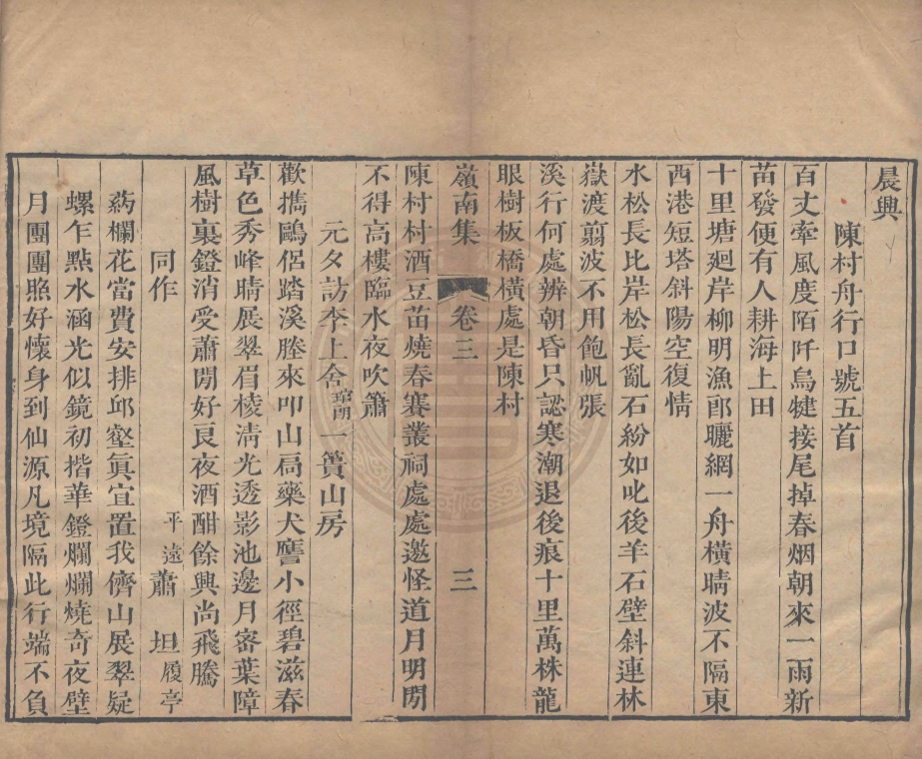 晨興
陳村舟行口號五首
百丈牽風度陌阡烏犍接尾掉春烟朝來一雨新
苗發便有人耕海上田
十里塘廻岸柳明漁郎曬網一舟橫晴波不隔東
西港短塔斜陽空復情
水松長比岸松長亂石紛如叱後羊石壁斜連林
嶽渡翦波不用飽帆張
溪行何處辨朝昏只認寒潮退後痕十里萬株龍
眼樹板橋橫處是陳村
嶺南集 卷三 三
陳村村酒豆苗燒春賽叢祠處處邀怪道月明閒
不得高樓臨水夜吹簫
元夕訪李上舍一簣山房
歡擕鷗侶踏溪塍來叩山扃藥犬譍小徑碧滋春
草色秀峰晴展翠眉棱淸光透影池邊月審葉障
風樹裏鐙消受蕭閒好良夜酒酣餘興尚飛騰
同作 平遠蕭坦履亭
葯欄花當費安排邱壑眞宜置我儕山展翠疑
螺乍點水涵光似鏡初揩華鐙爛爛燒奇夜璧
月團團照好懷身到仙源凡境隔此行端不負